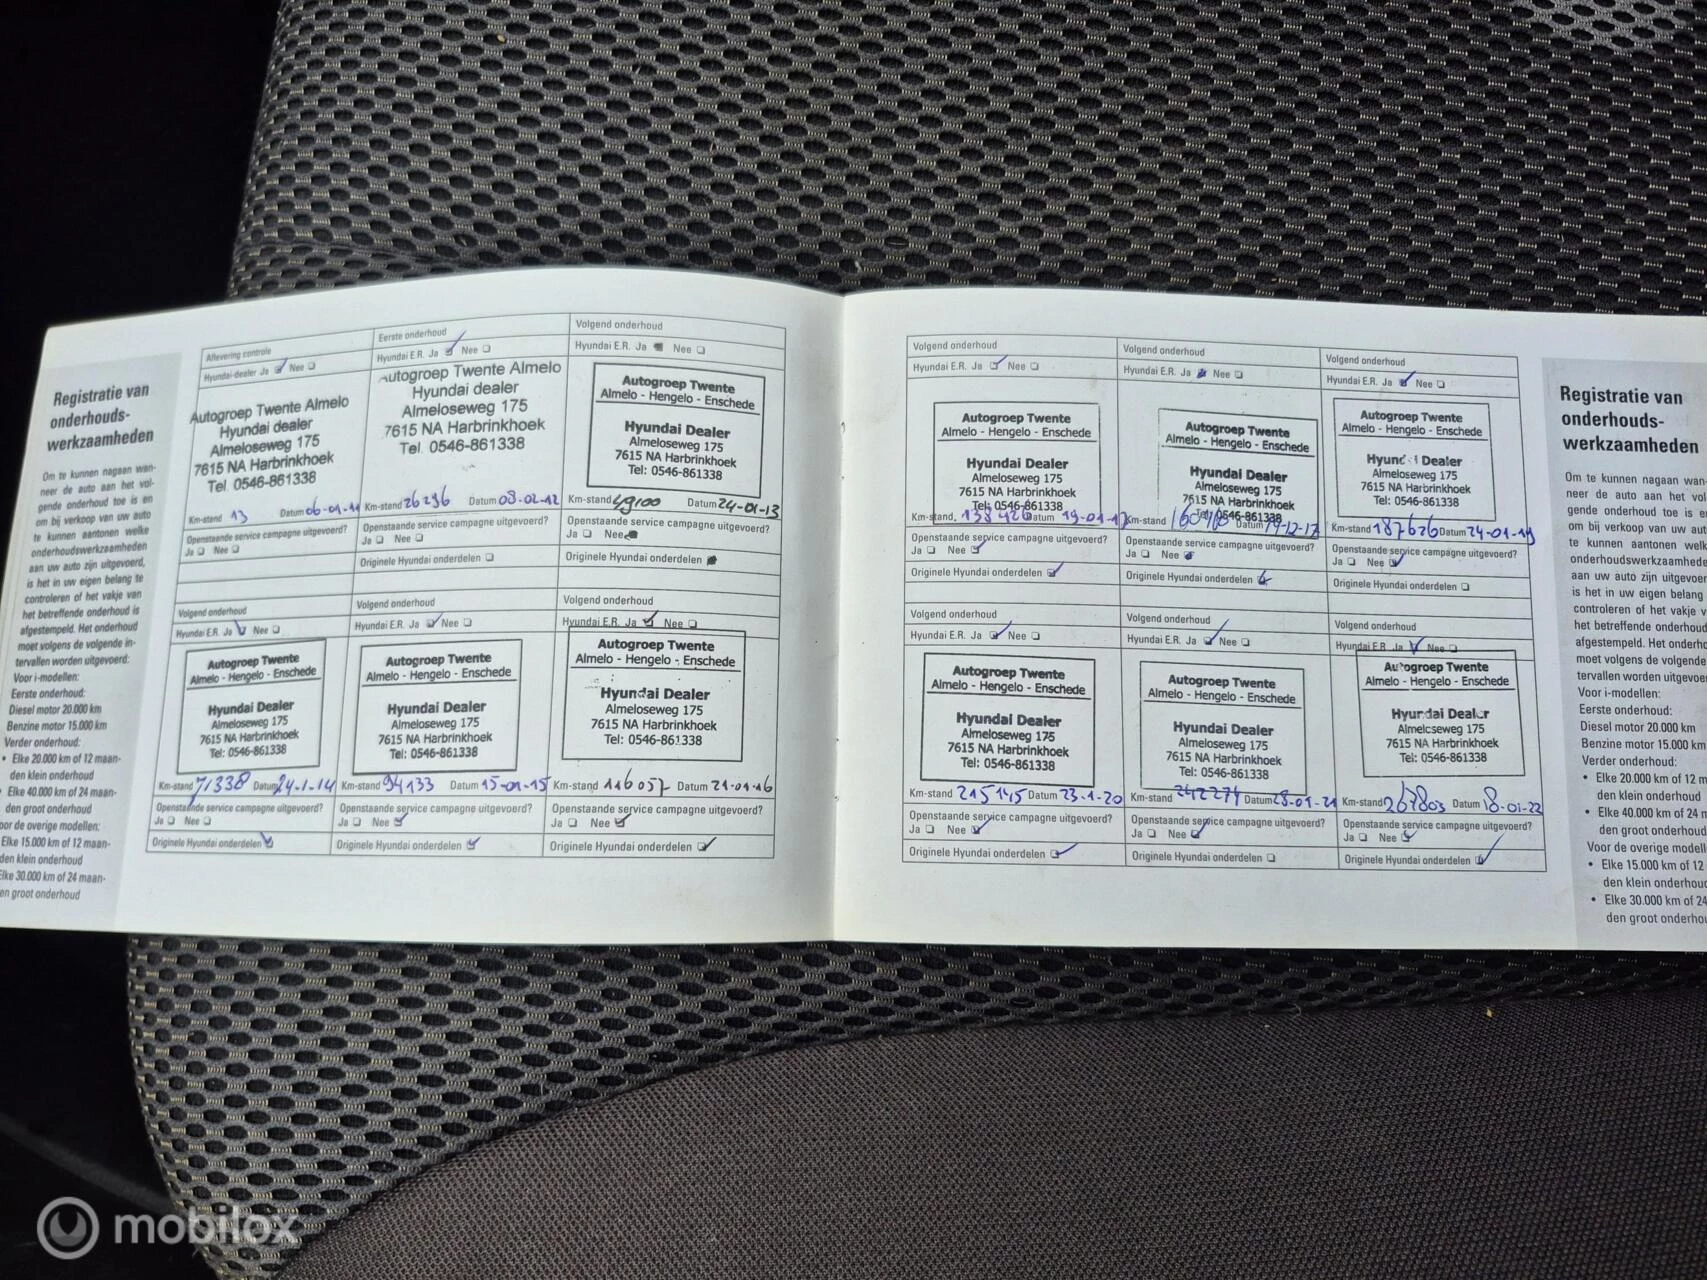 Registratie van
onderhouds-
werkzaamheden
Om te kunnen nagaan wan-
neer de auto aan het vol-
gende onderhoud toe is en
om bij verkoop van uw auto
te kunnen aantonen welke
onderhoudswerkzaamheden
aan uw auto zijn uitgevoerd,
is het in uw eigen belang te
controleren of het vakje van
het betreffende onderhoud is
afgestempeld. Het onderhoud
moet volgens de volgende in-
tervallen worden uitgevoerd:
Voor i-modellen:
Eerste onderhoud:
Diesel motor 20.000 km
Benzine motor 15.000 km
Verder onderhoud:
• Elke 20.000 km of 12 maan-
den klein onderhoud
• Elke 40.000 km of 24 maan-
den groot onderhoud
oor de overige modellen:
Elke 15.000 km of 12 maan-
den klein onderhoud
Elke 30.000 km of 24 maan-
en groot onderhoud
Aflevering controle
Hyundai-dealer Ja Nee
Autogroep Twente Almelo
Hyundai dealer
Almeloseweg 175
7615 NA Harbrinkhoek
Tel. 0546-861338
Km-stand 13 Datum 06-01-11
Openstaande service campagne uitgevoerd?
Ja Nee
Eerste onderhoud
Hyundai E.R. Ja Nee
Autogroep Twente Almelo
Hyundai dealer
Almeloseweg 175
7615 NA Harbrinkhoek
Tel. 0546-861338
Km-stand 26296 Datum 08-02-12
Openstaande service campagne uitgevoerd?
Ja Nee
Originele Hyundai onderdelen
Volgend onderhoud
Hyundai E.R. Ja Nee
Autogroep Twente
Almelo - Hengelo - Enschede
Hyundai Dealer
Almeloseweg 175
7615 NA Harbrinkhoek
Tel: 0546-861338
Km-stand 49100 Datum 24-01-13
Openstaande service campagne uitgevoerd?
Ja Nee
Originele Hyundai onderdelen
Volgend onderhoud
Hyundai E.R. Ja Nee
Autogroep Twente
Almelo - Hengelo - Enschede
Hyundai Dealer
Almeloseweg 175
7615 NA Harbrinkhoek
Tel: 0546-861338
Km-stand 71338 Datum 24-1-14
Openstaande service campagne uitgevoerd?
Ja Nee
Originele Hyundai onderdelen
Volgend onderhoud
Hyundai E.R. Ja Nee
Autogroep Twente
Almelo - Hengelo - Enschede
Hyundai Dealer
Almeloseweg 175
7615 NA Harbrinkhoek
Tel: 0546-861338
Km-stand 94133 Datum 15-01-15
Openstaande service campagne uitgevoerd?
Ja Nee
Originele Hyundai onderdelen
Volgend onderhoud
Hyundai E.R. Ja Nee
Autogroep Twente
Almelo - Hengelo - Enschede
Hyundai Dealer
Almeloseweg 175
7615 NA Harbrinkhoek
Tel: 0546-861338
Km-stand 116057 Datum 21-01-16
Openstaande service campagne uitgevoerd?
Ja Nee
Originele Hyundai onderdelen
Volgend onderhoud
Hyundai E.R. Ja Nee
Autogroep Twente
Almelo - Hengelo - Enschede
Hyundai Dealer
Almeloseweg 175
7615 NA Harbrinkhoek
Tel: 0546-861338
Km-stand 138426 Datum 19-01-17
Openstaande service campagne uitgevoerd?
Ja Nee
Originele Hyundai onderdelen
Volgend onderhoud
Hyundai E.R. Ja Nee
Autogroep Twente
Almelo - Hengelo - Enschede
Hyundai Dealer
Almeloseweg 175
7615 NA Harbrinkhoek
Tel: 0546-861338
Km-stand Datum
Openstaande service campagne uitgevoerd?
Ja Nee
Originele Hyundai onderdelen
Volgend onderhoud
Hyundai E.R. Ja Nee
Autogroep Twente
Almelo - Hengelo - Enschede
Hyundai Dealer
Almeloseweg 175
7615 NA Harbrinkhoek
Tel: 0546-861338
Km-stand 187626 Datum 24-01-19
Openstaande service campagne uitgevoerd?
Ja Nee
Originele Hyundai onderdelen
Volgend onderhoud
Hyundai E.R. Ja Nee
Autogroep Twente
Almelo - Hengelo - Enschede
Hyundai Dealer
Almeloseweg 175
7615 NA Harbrinkhoek
Tel: 0546-861338
Km-stand 215145 Datum 23-1-20
Openstaande service campagne uitgevoerd?
Ja Nee
Originele Hyundai onderdelen
Volgend onderhoud
Hyundai E.R. Ja Nee
Autogroep Twente
Almelo - Hengelo - Enschede
Hyundai Dealer
Almeloseweg 175
7615 NA Harbrinkhoek
Tel: 0546-861338
Km-stand 242274 Datum 28-01-21
Openstaande service campagne uitgevoerd?
Ja Nee
Originele Hyundai onderdelen
Volgend onderhoud
Hyundai E.R. Ja Nee
Autogroep Twente
Almelo - Hengelo - Enschede
Hyundai Dealer
Almeloseweg 175
7615 NA Harbrinkhoek
Tel: 0546-861338
Km-stand 267803 Datum 18-01-22
Openstaande service campagne uitgevoerd?
Ja Nee
Originele Hyundai onderdelen
Registratie van
onderhouds-
werkzaamheden
Om te kunnen nagaan wan-
neer de auto aan het vol
gende onderhoud toe is en
om bij verkoop van uw auto
te kunnen aantonen welk
onderhoudswerkzaamhede
aan uw auto zijn uitgevoer
is het in uw eigen belang te
controleren of het vakje v
het betreffende onderhoud
afgestempeld. Het onderho
moet volgens de volgende
tervallen worden uitgevoer
Voor i-modellen:
Eerste onderhoud:
Diesel motor 20.000 km
Benzine motor 15.000 km
Verder onderhoud:
• Elke 20.000 km of 12 maa
den klein onderhoud
• Elke 40.000 km of 24 m
den groot onderhoud
Voor de overige modell
• Elke 15.000 km of 12
den klein onderhoud
• Elke 30.000 km of 24
den groot onderhou
mobilox